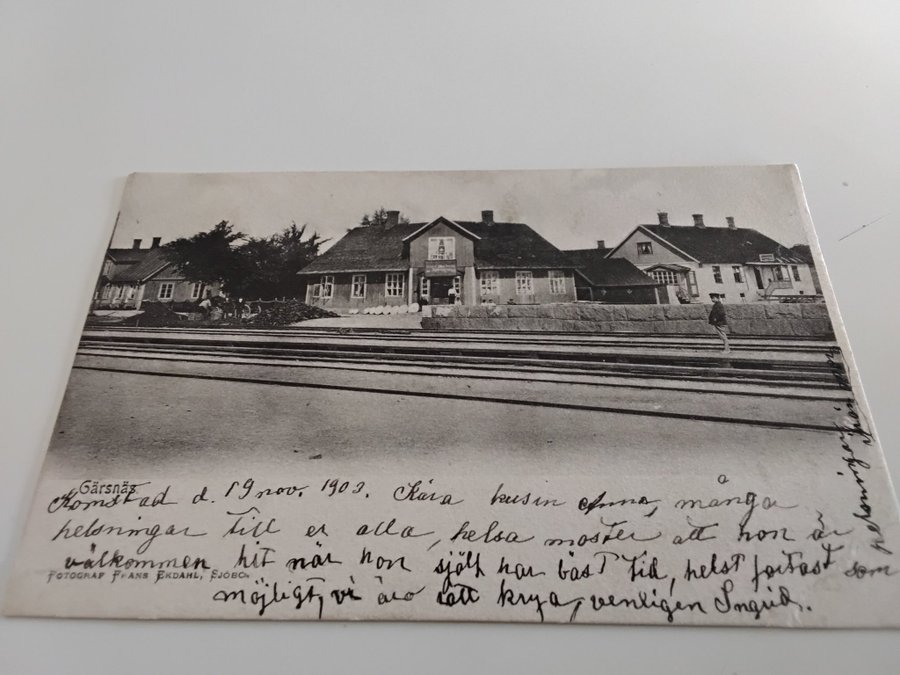 Gärsnäs
Komstad d. 19 nov. 1903. Kära kusin Anna, många
helsningar till er alla, helsa moster att hon är
välkommen hit när hon själf har bäst tid, helst fortast som
möjligt, vi äro rätt krya, venligen Ingrid.
FOTOGRAF FRANS EKDAHL, SJÖBO.
helsningar från